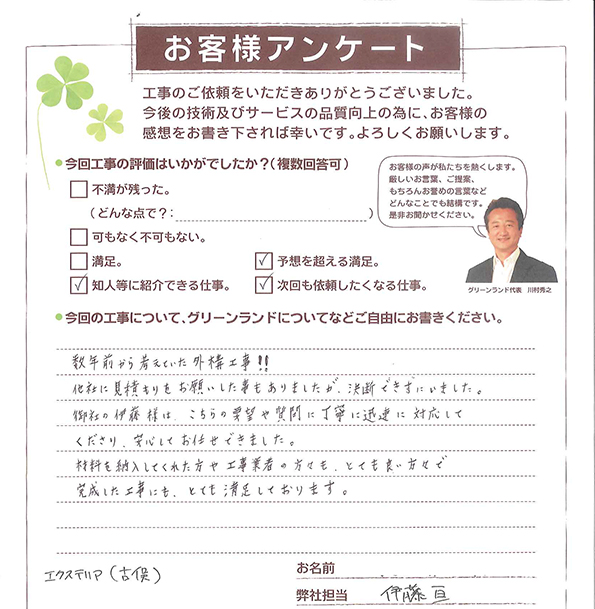 お客様アンケート
工事のご依頼をいただきありがとうございました。
今後の技術及びサービスの品質向上の為に、お客様の
感想をお書き下されば幸いです。よろしくお願いします。
●今回工事の評価はいかがでしたか？（複数回答可）
不満が残った。
（どんな点で？：　）
可もなく不可もない。
満足。
☑予想を超える満足。
☑知人等に紹介できる仕事。
☑次回も依頼したくなる仕事。
お客様の声が私たちを熱くします。
厳しいお言葉、ご提案、
もちろんお誉めの言葉など
どんなことでも結構です。
是非お聞かせください。
グリーンランド代表　川村秀之
●今回の工事について、グリーンランドについてなどご自由にお書きください。
数年前から考えていた外構工事!!
他社に見積もりをお願いした事もありましたが、決断できずにいました。
御社の伊藤様は、こちらの要望や質問に丁寧に迅速に対応して
くださり、安心してお任せできました。
材料を納入してくれた方や工事業者の方々も、とても良い方々で
完成した工事にも、とても満足しております。
エクステリア（古俣）
お名前
弊社担当　伊藤 亘